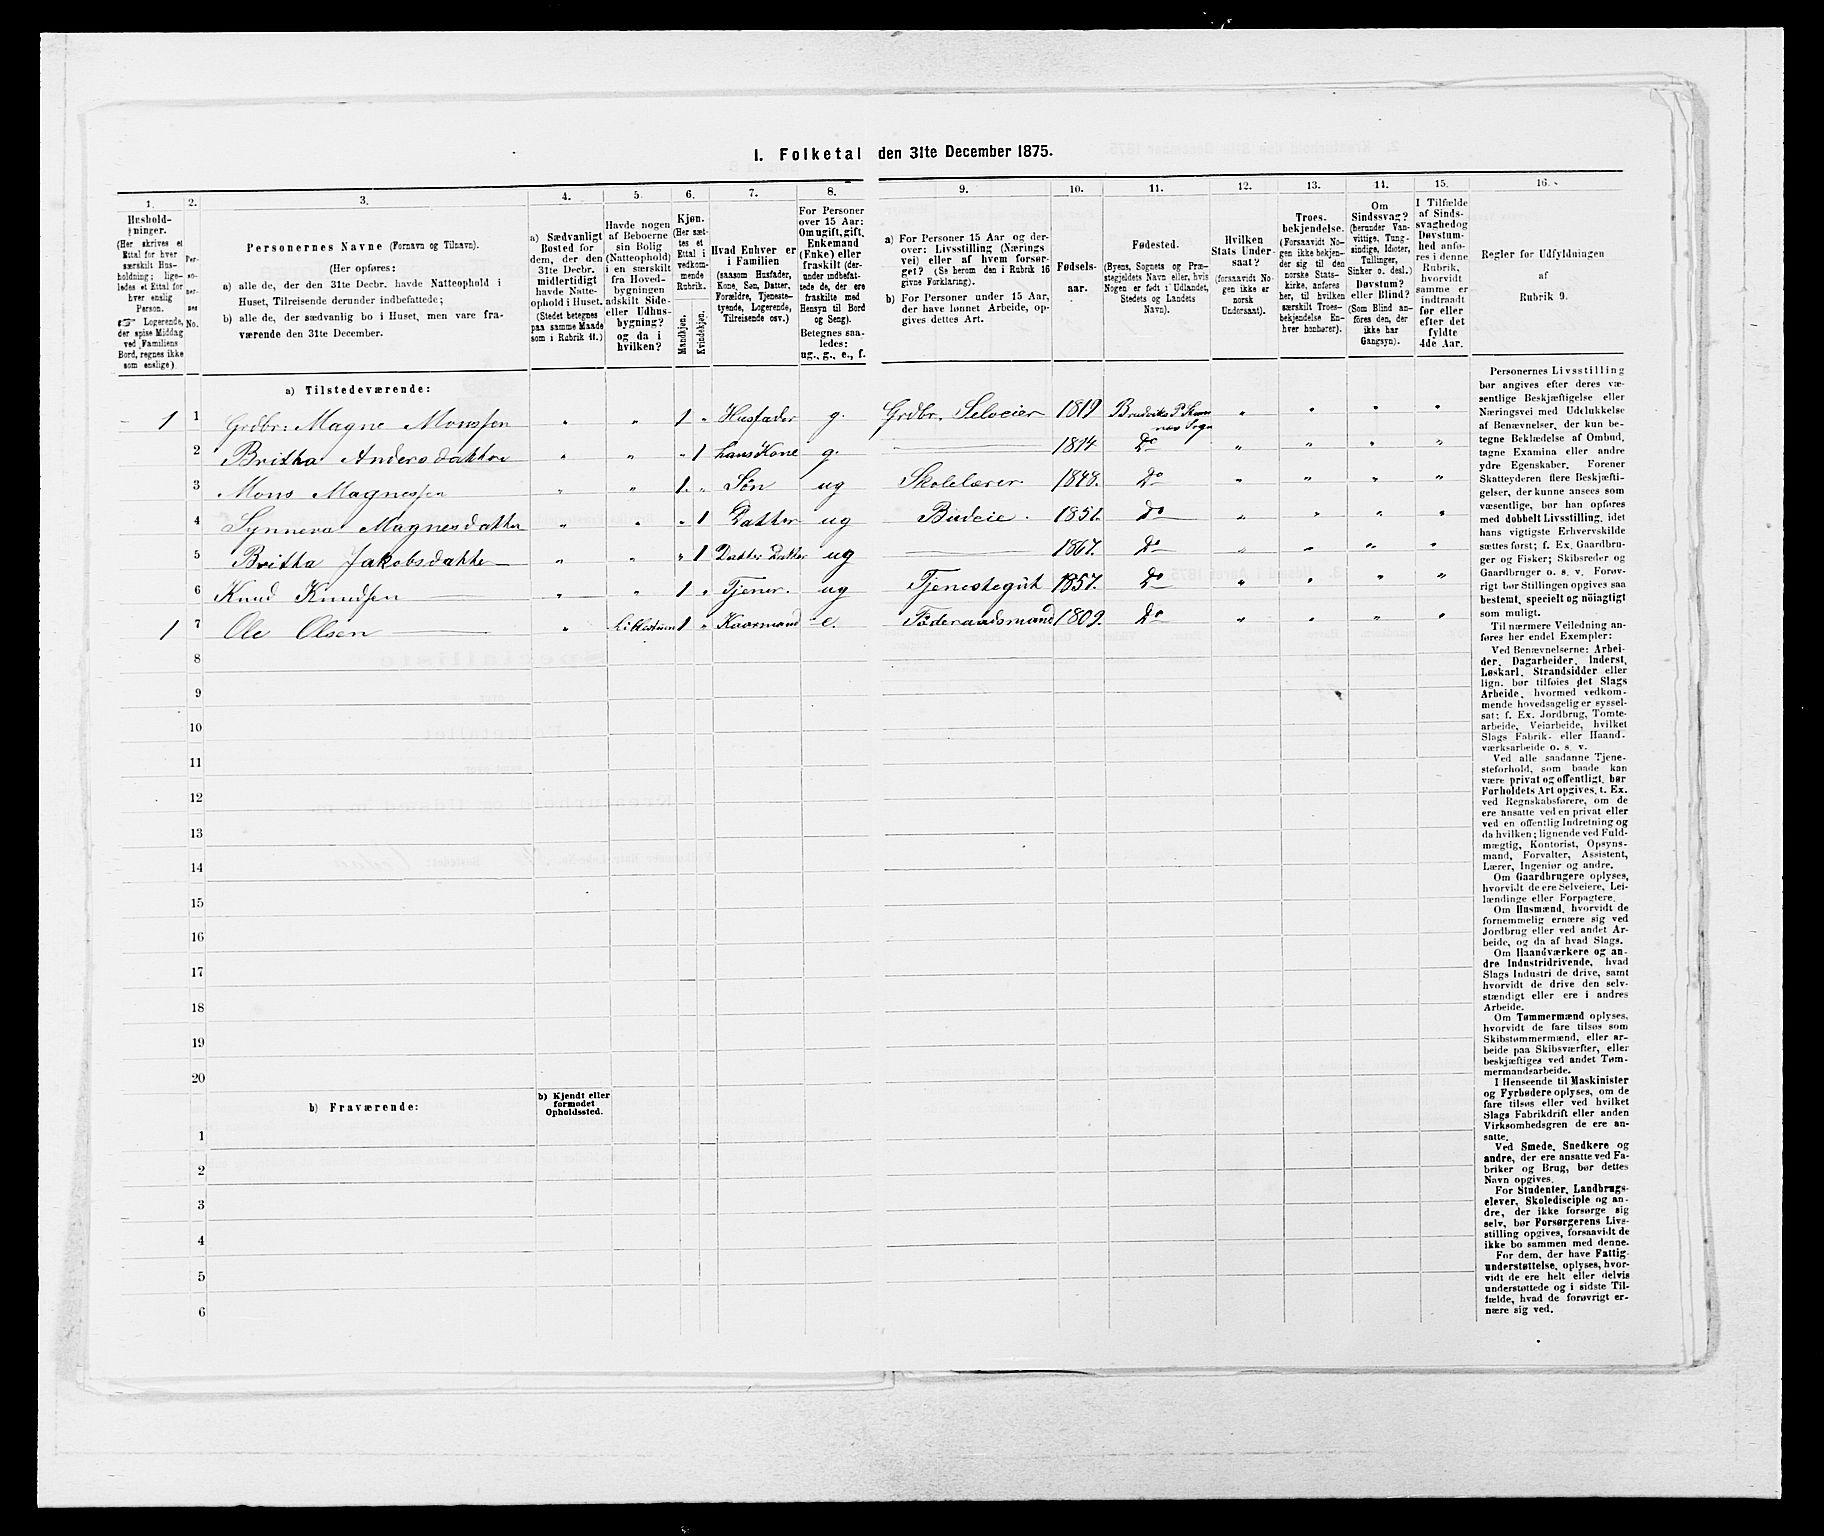 I. Folketal den 31te December 1875.
1. 2. 3. 4. 5. 6. 7. 8. 9. 10. 11. 12. 13. 14. 15. 16.
Hushold-
ninger.
(Her skrives et
Ettal for hver
særskilt Hus-
holdning; lige-
ledes et Ettal for
hver enslig
Person.
☞ Logerende,
der spise Middag
ved Familiens
Bord, regnes ikke
som enslige).
Per-
so-
ner-
nes
No.
Personernes Navne (Fornavn og Tilnavn).
(Her opføres:
a) alle de, der den 31te Decbr. havde Natteophold i
Huset, Tilreisende derunder indbefattede;
b) alle de, der sædvanlig bo i Huset, men vare fra-
værende den 31te December.
a) Sædvanligt
Bosted for
dem, der den
31te Decbr.
midlertidigt
havde Natte-
ophold i Huset.
(Stedet betegnes
paa samme Maade
som i Rubrik 11.)
Havde nogen
af Beboerne
sin Bolig
(Natteophold)
i en særskilt
fra Hoved-
bygningen
adskilt Side-
eller Udhus-
bygning?
og da i
hvilken?
Kjøn.
(Her sæt-
tes et
Ettal i
vedkom-
mende
Rubrik.
Mandkjøn.
Kvindekjøn.
Hvad Enhver er
i Familien
(saasom Husfader,
Kone, Søn, Datter,
Forældre, Tjeneste-
tyende, Logerende,
Tilreisende osv.)
For Personer
over 15 Aar:
Om ugift, gift,
Enkemand
(Enke) eller
fraskilt (der-
under indbefat-
tede de, der ere
fraskilte med
Hensyn til Bord
og Seng).
Betegnes saa-
ledes:
ug., g., e., f.
a) For Personer 15 Aar og der-
over: Livsstilling (Nærings-
vei) eller af hvem forsør-
get? (Se herom den i Rubrik 16
givne Forklaring).
b) For Personer under 15 Aar,
der have lønnet Arbeide, op-
gives dettes Art.
Fødsels-
aar.
Fødested.
(Byens, Sognets og Præ-
stegjeldets Navn eller, hvis
Nogen er født i Udlandet,
Stedets og Landets
Navn).
Hvilken
Stats Under-
saat?
(forsaavidt No-
gen ikke er
norsk
Undersaat).
Troes-
bekjendelse.
(Forsaavidt No-
gen ikke bekjen-
der sig til den
norske Stats-
kirke, anføres
her, til hvilken
særskilt Troes-
bekjendelse En-
hver henhører).
Om
Sindssvag?
(herunder Van-
vittige, Tung-
sindige, Idioter,
Tullinger,
Sinker o. desl.)
Døvstum?
eller Blind?
(Som Blind an-
føres den, der
ikke har
Gangsyn).
I Tilfælde
af Sinds-
svaghed og
Døvstum-
hed anfø-
res i denne
Rubrik,
hvorvidt
samme er
indtraadt
før eller
efter det
fyldte
4de Aar.
Regler for Udfyldningen
af
Rubrik 9.
a) Tilstedeværende:
1 1 Grdbr: Magne Monssen " " 1 " Husfader g. Grdbr. Selveier 1819 P. Sogn " " " "
2 Britha Andersdatter " " " 1 hans Kone g. 1814 Do " " " "
3 Mons Magnessen " " 1 " Søn ug Skolelærer 1848. Do " " " "
4 Synneva Magnesdatter " " " 1 Datter ug Budeie. 1851. Do " " " "
5 Britha Jakobsdatter " " " 1 Datter Datter ug 1867. Do " " " "
6 Knud Knudsen " " 1 " Tjener. ug Tjenestegut 1857. Do " " " "
1 7 Ole Olsen " 1 " Kaarmand e. Føderaadsmand 1809. Do " " " "
8
9
10
11
12
13
14
15
16
17
18
19
20
b) Fraværende:
b) Kjendt eller
formodet
Opholdssted.
1
2
3
4
5
6
Personernes Livsstilling
bør angives efter deres væ-
sentlige Beskjæftigelse eller
Næringsvei med Udelukkelse
af Benævnelser, der kun be-
tegne Beklædelse af Ombud,
tagne Examina eller andre
ydre Egenskaber. Forener
Skatteyderen flere Beskjæfti-
gelser, der kunne ansees som
væsentlige, bør han opføres
med dobbelt Livsstilling, idet
hans vigtigste Erhvervskilde
sættes først; f. Ex. Gaardbru-
ger og Fisker; Skibsreder og
Gaardbruger o. s. v. Forøv-
rigt bør Stillingen opgives saa
bestemt, specielt og nöiagtigt
som muligt.
Til nærmere Veiledning an-
føres her endel Exempler:
Ved Benævnelserne: Arbei-
der, Dagarbeider, Inderst,
Løskarl, Strandsidder eller
lign. bør tilføies det Slags
Arbeide, hvormed vedkom-
mende hovedsagelig er syssel-
sat; f. Ex. Jordbrug, Tomte-
arbeide, Veiarbeide, hvilket
Slags Fabrik- eller Haand-
værksarbeide o. s. v.
Ved alle saadanne Tjene-
steforhold, som baade kan
være privat og offentligt, bør
Forholdets Art opgives, t. Ex.
ved Regnskabsførere, om de
ere ansatte ved en privat eller
ved en offentlig Indretning og
da hvilken; lignende ved Fuld-
mægtig, Kontorist, Opsyns-
mand, Forvalter, Assistent,
Lærer, Ingeniør og andre.
Om Gaardbrugere oplyses,
hvorvidt de ere Selveiere, Lei-
lændinge eller Forpagtere.
Om Husmænd, hvorvidt de
fornemmelig ernære sig ved
Jordbrug eller ved andet Ar-
beide, og da af hvad Slags.
Om Haandværkere og an-
dre Industridrivende, hvad
Slags Industri de drive, samt
hvorvidt de drive den selv-
stændigt eller ere i andres
Arbeide.
Om Tømmermænd oplyses,
hvorvidt de fare tilsøs som
Skibstømmermænd, eller ar-
beide paa Skibsværfter, eller
beskjæftiges ved andet Tøm-
mermandsarbeide.
I Henseende til Maskinister
og Fyrbødere oplyses, om de
fare tilsøs eller ved hvilket
Slags Fabrikdrift eller anden
Virksomhedsgren de ere an-
satte.
Ved Smede, Snedkere og
andre, der ere ansatte ved Fa-
briker og Brug, bør dettes
Navn opgives.
For Studenter, Landbrugs-
elever, Skoledisciple og an-
dre, der ikke forsørge sig
selv, bør Forsørgerens Livs-
stilling opgives, forsaavidt de
ikke bo sammen med denne.
For dem, der have Fattig-
understøttelse, oplyses, hvor-
vidt de ere helt eller delvis
understøttede og i sidste Til-
fælde, hvad de forøvrigt er-
nære sig ved.